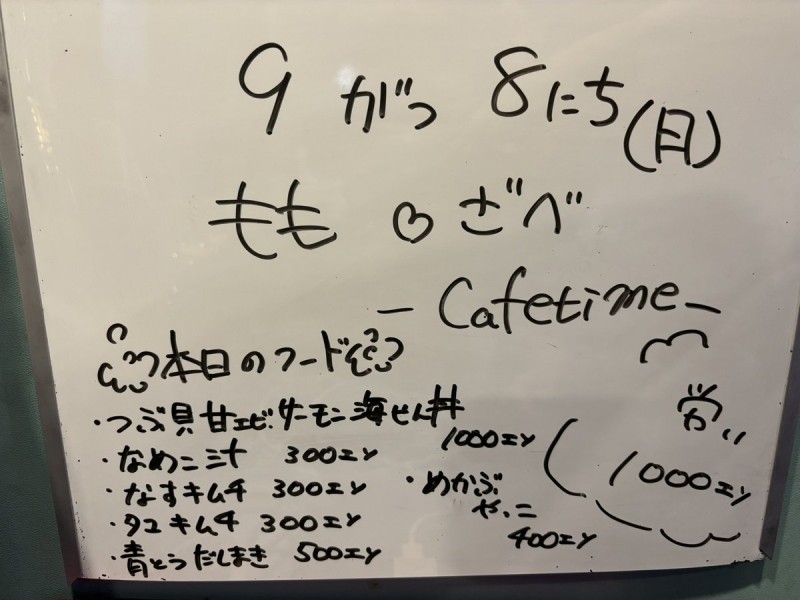 9がつ8にち(日)
もも♡ざべ
- Cafetime -
本日のフード
・つぶ貝甘エビサーモン海せん丼
1000エン
・なめこ汁 300エン
・なすキムチ 300エン
・タコキムチ 300エン
・青とうだしまき 500エン
・めかぶ
やっこ
400エン
1000エン